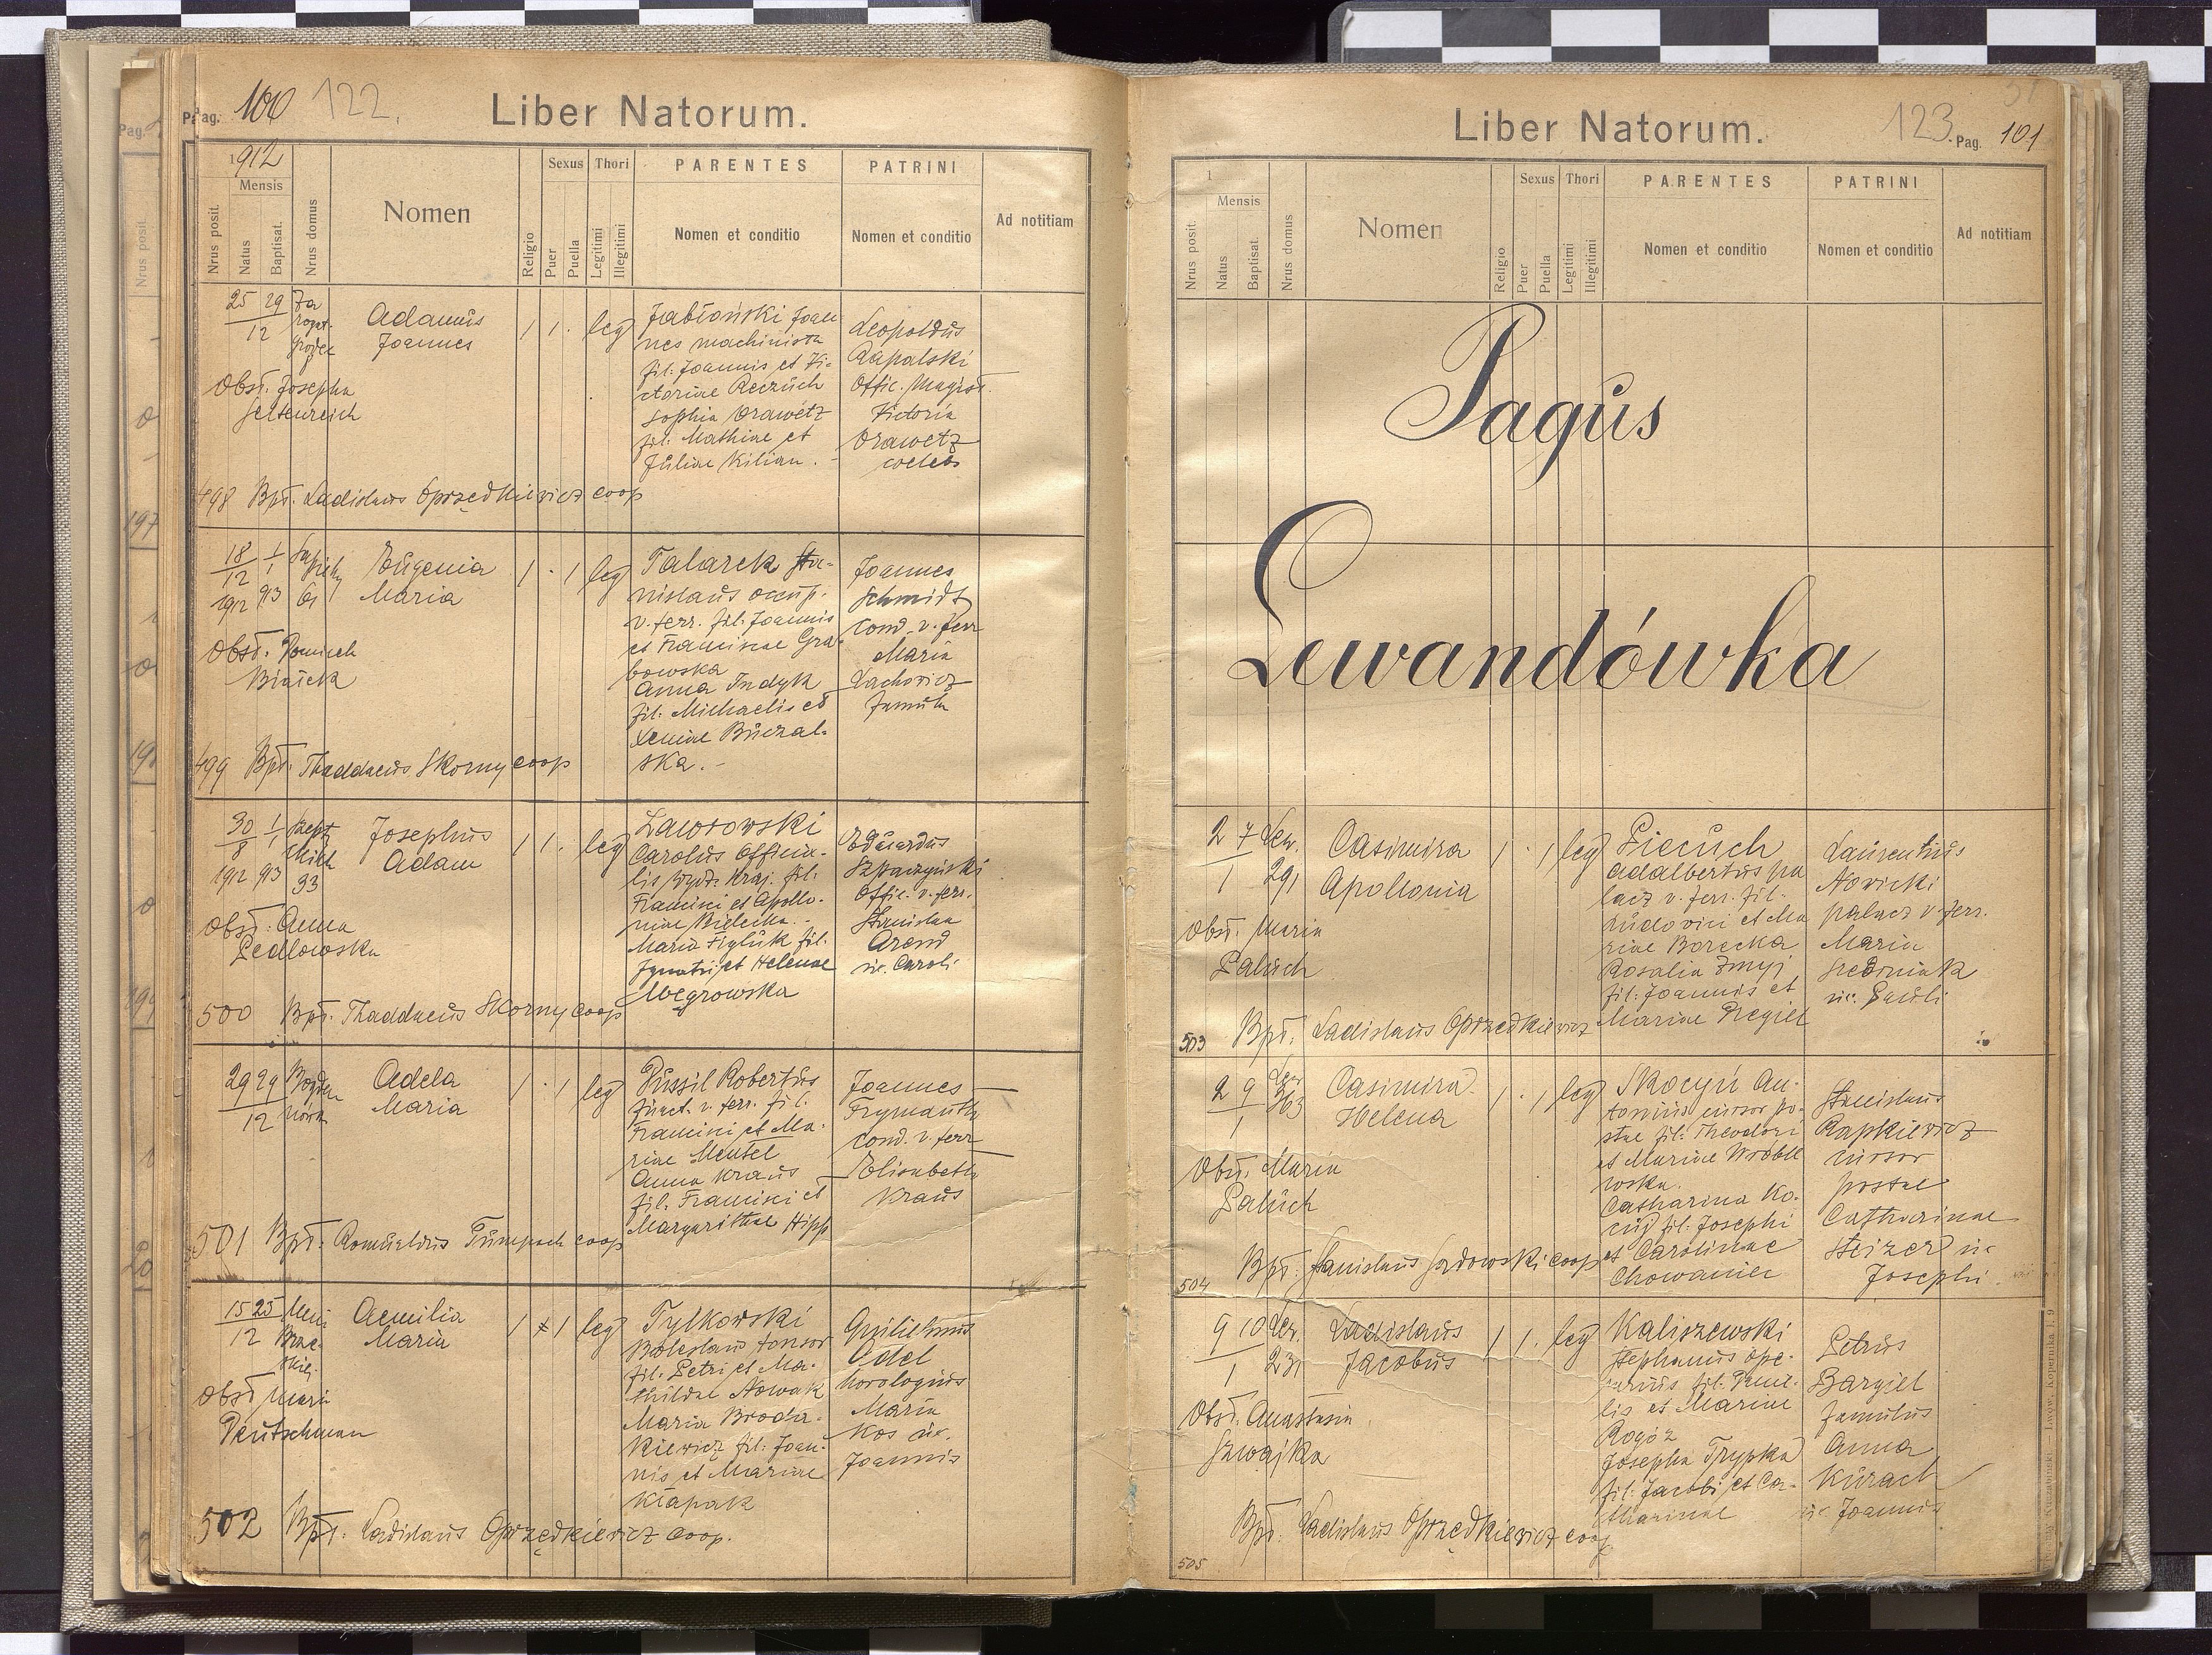 Pag. 100 122.
Liber Natorum.
1912
Nrus posit.
Mensis
Natus
Baptisat.
Nrus domus
Nomen
Religio
Sexus
Puer
Puella
Thori
Legitimi
Illegitimi
PARENTES
Nomen et conditio
PATRINI
Nomen et conditio
Ad notitiam
25 29
12
Adamus
Joannes
1 1 . leg
Jabłoński Joan
nes machinista
fil. Joannis et Vi-
ctoriae Reczuch
Sophia Orawetz
fil. Mathiae et
Juliae Kilian. -
Leopoldus
Rapalski
Offic. Magist.
Victoria
Orawetz
coelebs
Obst. Josepha
498 Bpt. Ladislaus Oprzędkiewicz coop
18 1
12 1
1912 913
61
Eugenia
Maria
1 . 1 leg
Talarek Sta-
nislaus occup.
v. ferr. fil. Joannis
et Franciscae Gra-
bowska
Anna Indyk
fil. Michaelis et
Xeniae Buczal-
ska. -
Joannes
Schmidt
cond. v. ferr
Maria
Lachowicz
famula
Obst.
499 Bpt. Thaddaeus Skorny coop
30 1
8 1
1912 913
93
Josephus
Adam
1 1 . leg
Ławrowski
Carolus Officia-
lis Wydz. Kraj. fil.
Francisci et Apollo-
niae Bielecka. -
Maria Figluk fil.
Ignatii et Helenae
Węgrowska
Eduardus
Offic. v. ferr.
Stanislaa
Arend
ux. Caroli
Obst. Anna
Pedlowska
500 Bpt. Thaddaeus Skorny coop
29 29
12
Adela
Maria
1 . 1 leg
Pussil Robertus
funct. v. ferr. fil.
Francisci et Ma-
riae Mentel
Anna Kraus
fil. Francisci et
Margarithae Hipp
Joannes
cond. v. ferr
Elisabeth
Kraus
501 Bpt. Romualdus coop
15 25
12
Aemilia
Maria
1 1 leg
Tylkowski
Boleslaus tonsor
fil. Petri et Ma-
thildae Nowak
Maria Broda-
kiewicz fil. Joan-
nis et Mariae
Kłapak
Guilielmus
Edel
horologius
Maria
Kos ux.
Joannis
Obst Maria
Deutschman
502 Bpt. Ladislaus Oprzędkiewicz coop.
Liber Natorum.
123 Pag. 101
1
Nrus posit.
Mensis
Natus
Baptisat.
Nrus domus
Nomen
Religio
Sexus
Puer
Puella
Thori
Legitimi
Illegitimi
PARENTES
Nomen et conditio
PATRINI
Nomen et conditio
Ad notitiam
Pagus
Lewandówka
2 7 Lew.
1 291
Casimira
Apollonia
1 . 1 leg
Piecuch
Adalbertus pa
lacz v. ferr. fil.
Ludovici et Ma
riae Borecka
Rosalia Żmyj
fil. Joannis et
Mariae Pregiel
Laurentius
Nowicki
palacz v. ferr.
Maria
Średniak
ux. Pauli
Obst. Maria
Paluch
503 Bpt. Ladislaus Oprzędkiewicz
2 9 Lew
1 363
Casimira
Helena
1 . 1 leg
Skoczyń An-
tonius cursor po-
stae fil. Theodori
et Mariae Wróble
wska.
Catharina Ko-
fil. Josephi
et Carolinae
Chowaniec
Stanislaus
Rapkiewicz
cursor
postae
Catharinae
Steizer ux
Josephi
Obst. Maria
Paluch
504 Bpt. Stanislaus Sadowski coop
9 10 Lew.
1 231
Ladislaus
Jacobus
1 1 . leg
Kaliszewski
Stephanus ope-
rarius fil. Danie-
lis et Mariae
Rogóz
Josepha Trypka
fil. Jacobi et Ca-
tharinae
Petrus
Bargiel
famulus
Anna
Kurach
ux Joannis
Obst. Anastasia
Szwajka
505 Bpt. Ladislaus Oprzędkiewicz coop